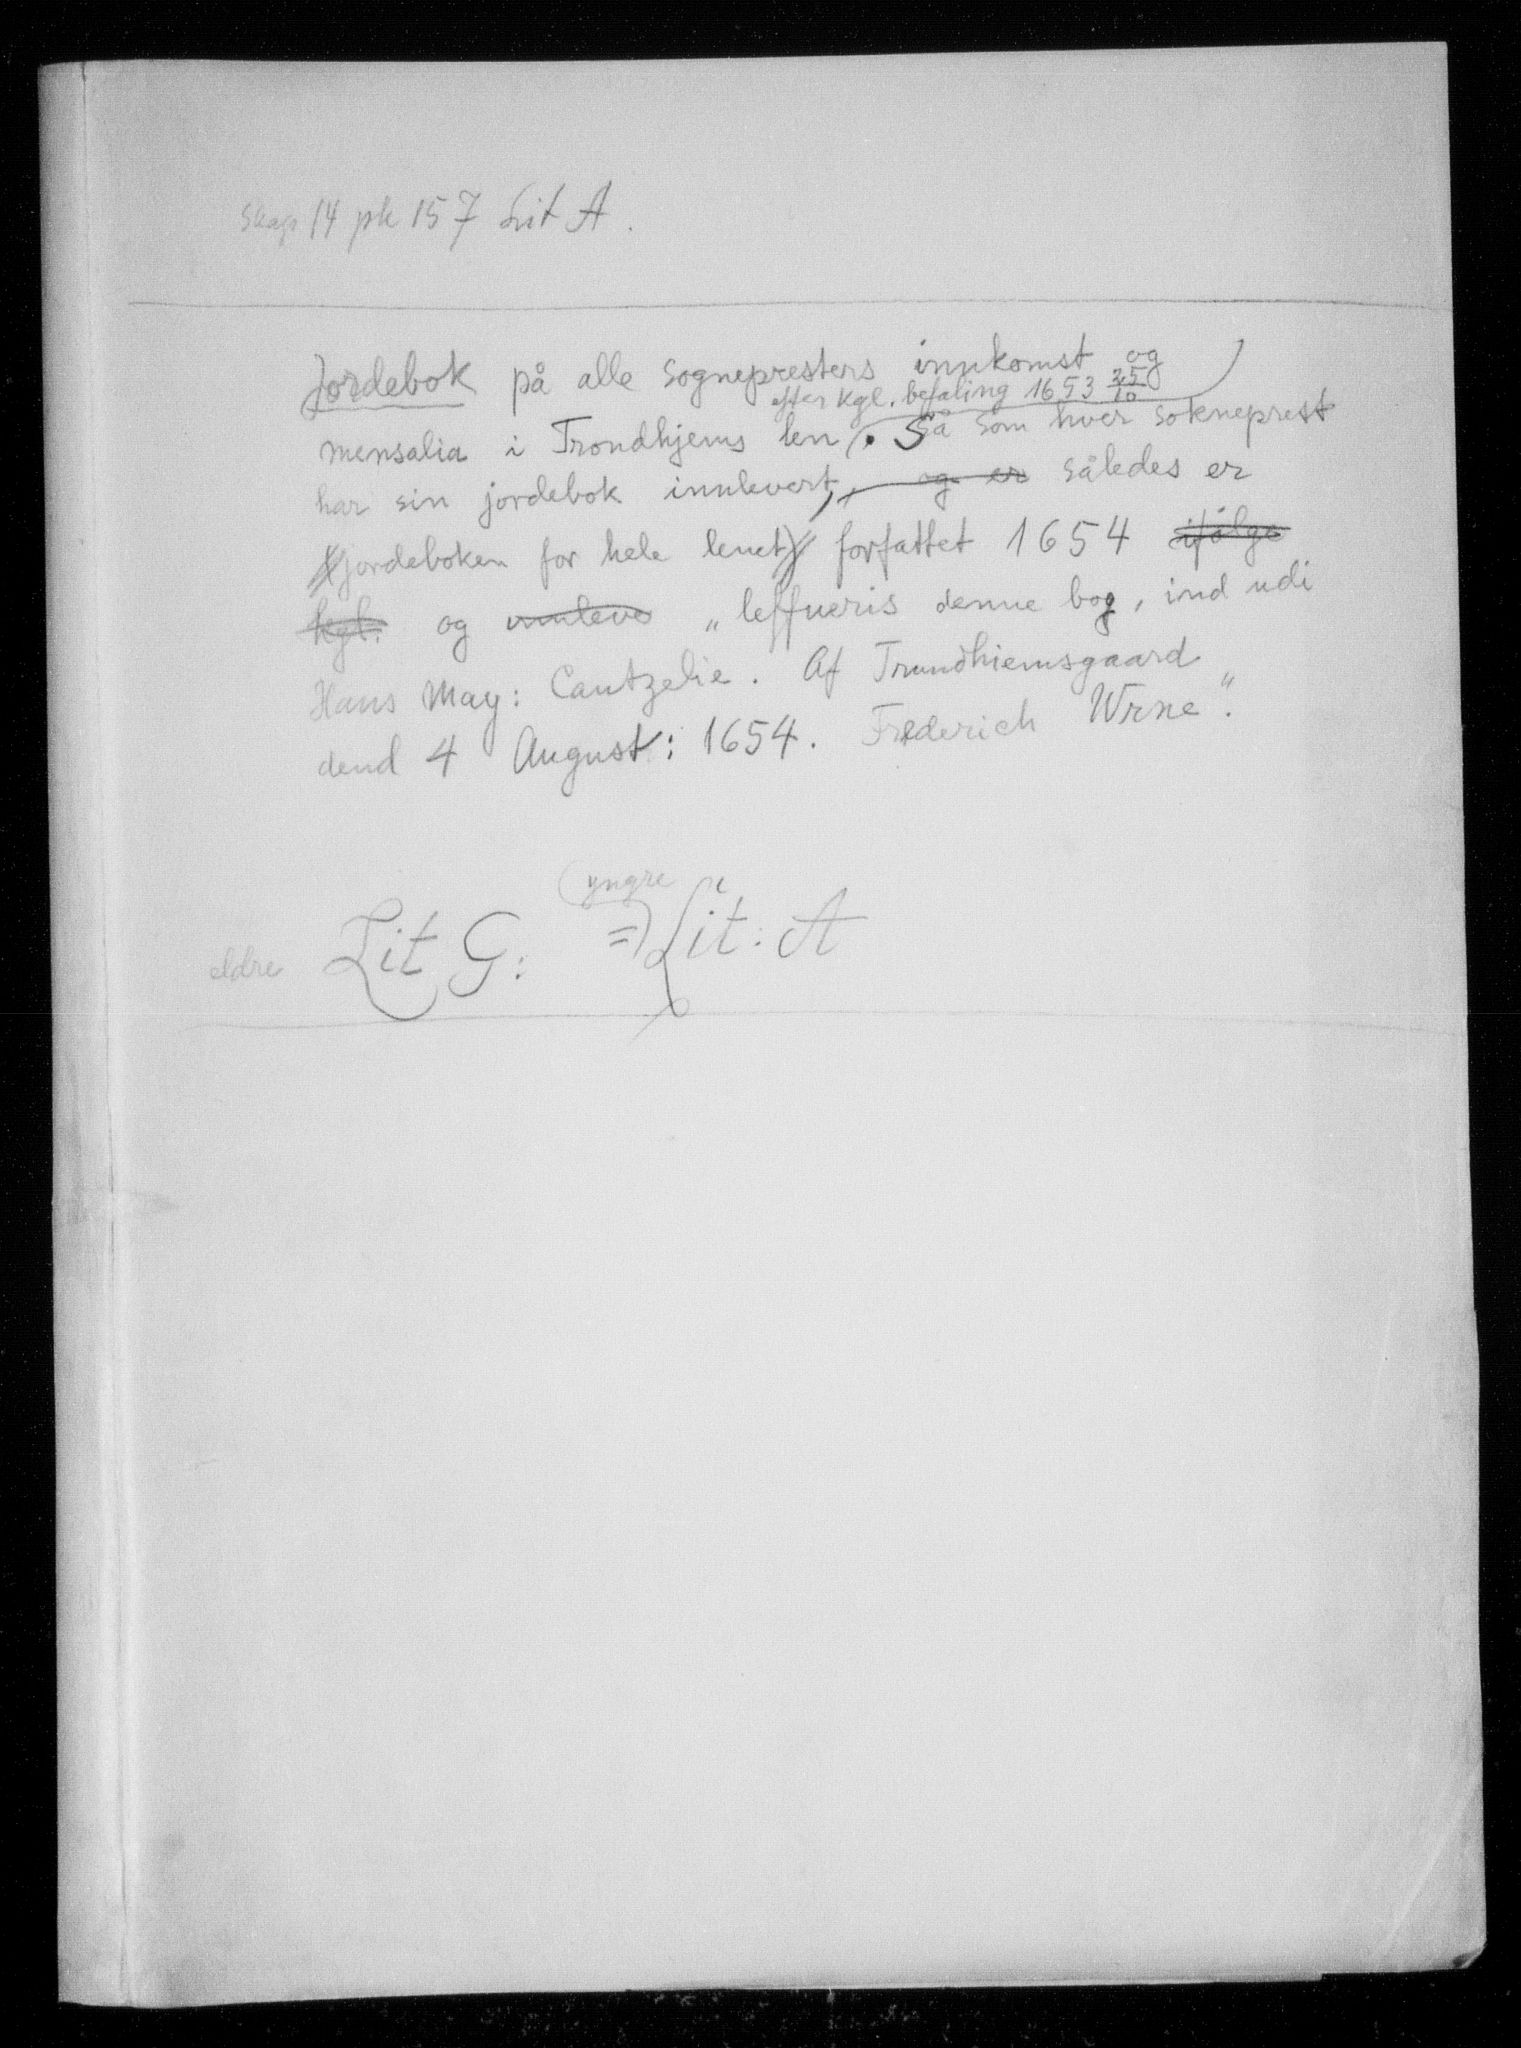 Skap 14 pk 157 Lit A.
Jordebok på alle sognepresters innkomst og
efter kgl. befaling 1653 25/10
mensalia i Trondhjems len. Så som hver sokneprest
har sin jordebok innlevert, og er således er
(jordeboken for hele lenet) forfattet 1654 ifølge
kgl. og innleve „leffueris denne bog, ind udi
Hans May: Cantzelie. Af Trundhiemsgaard
dend 4 August: 1654. Frederich Wrne".
(yngre
eldre Lit G: =) Lit: A